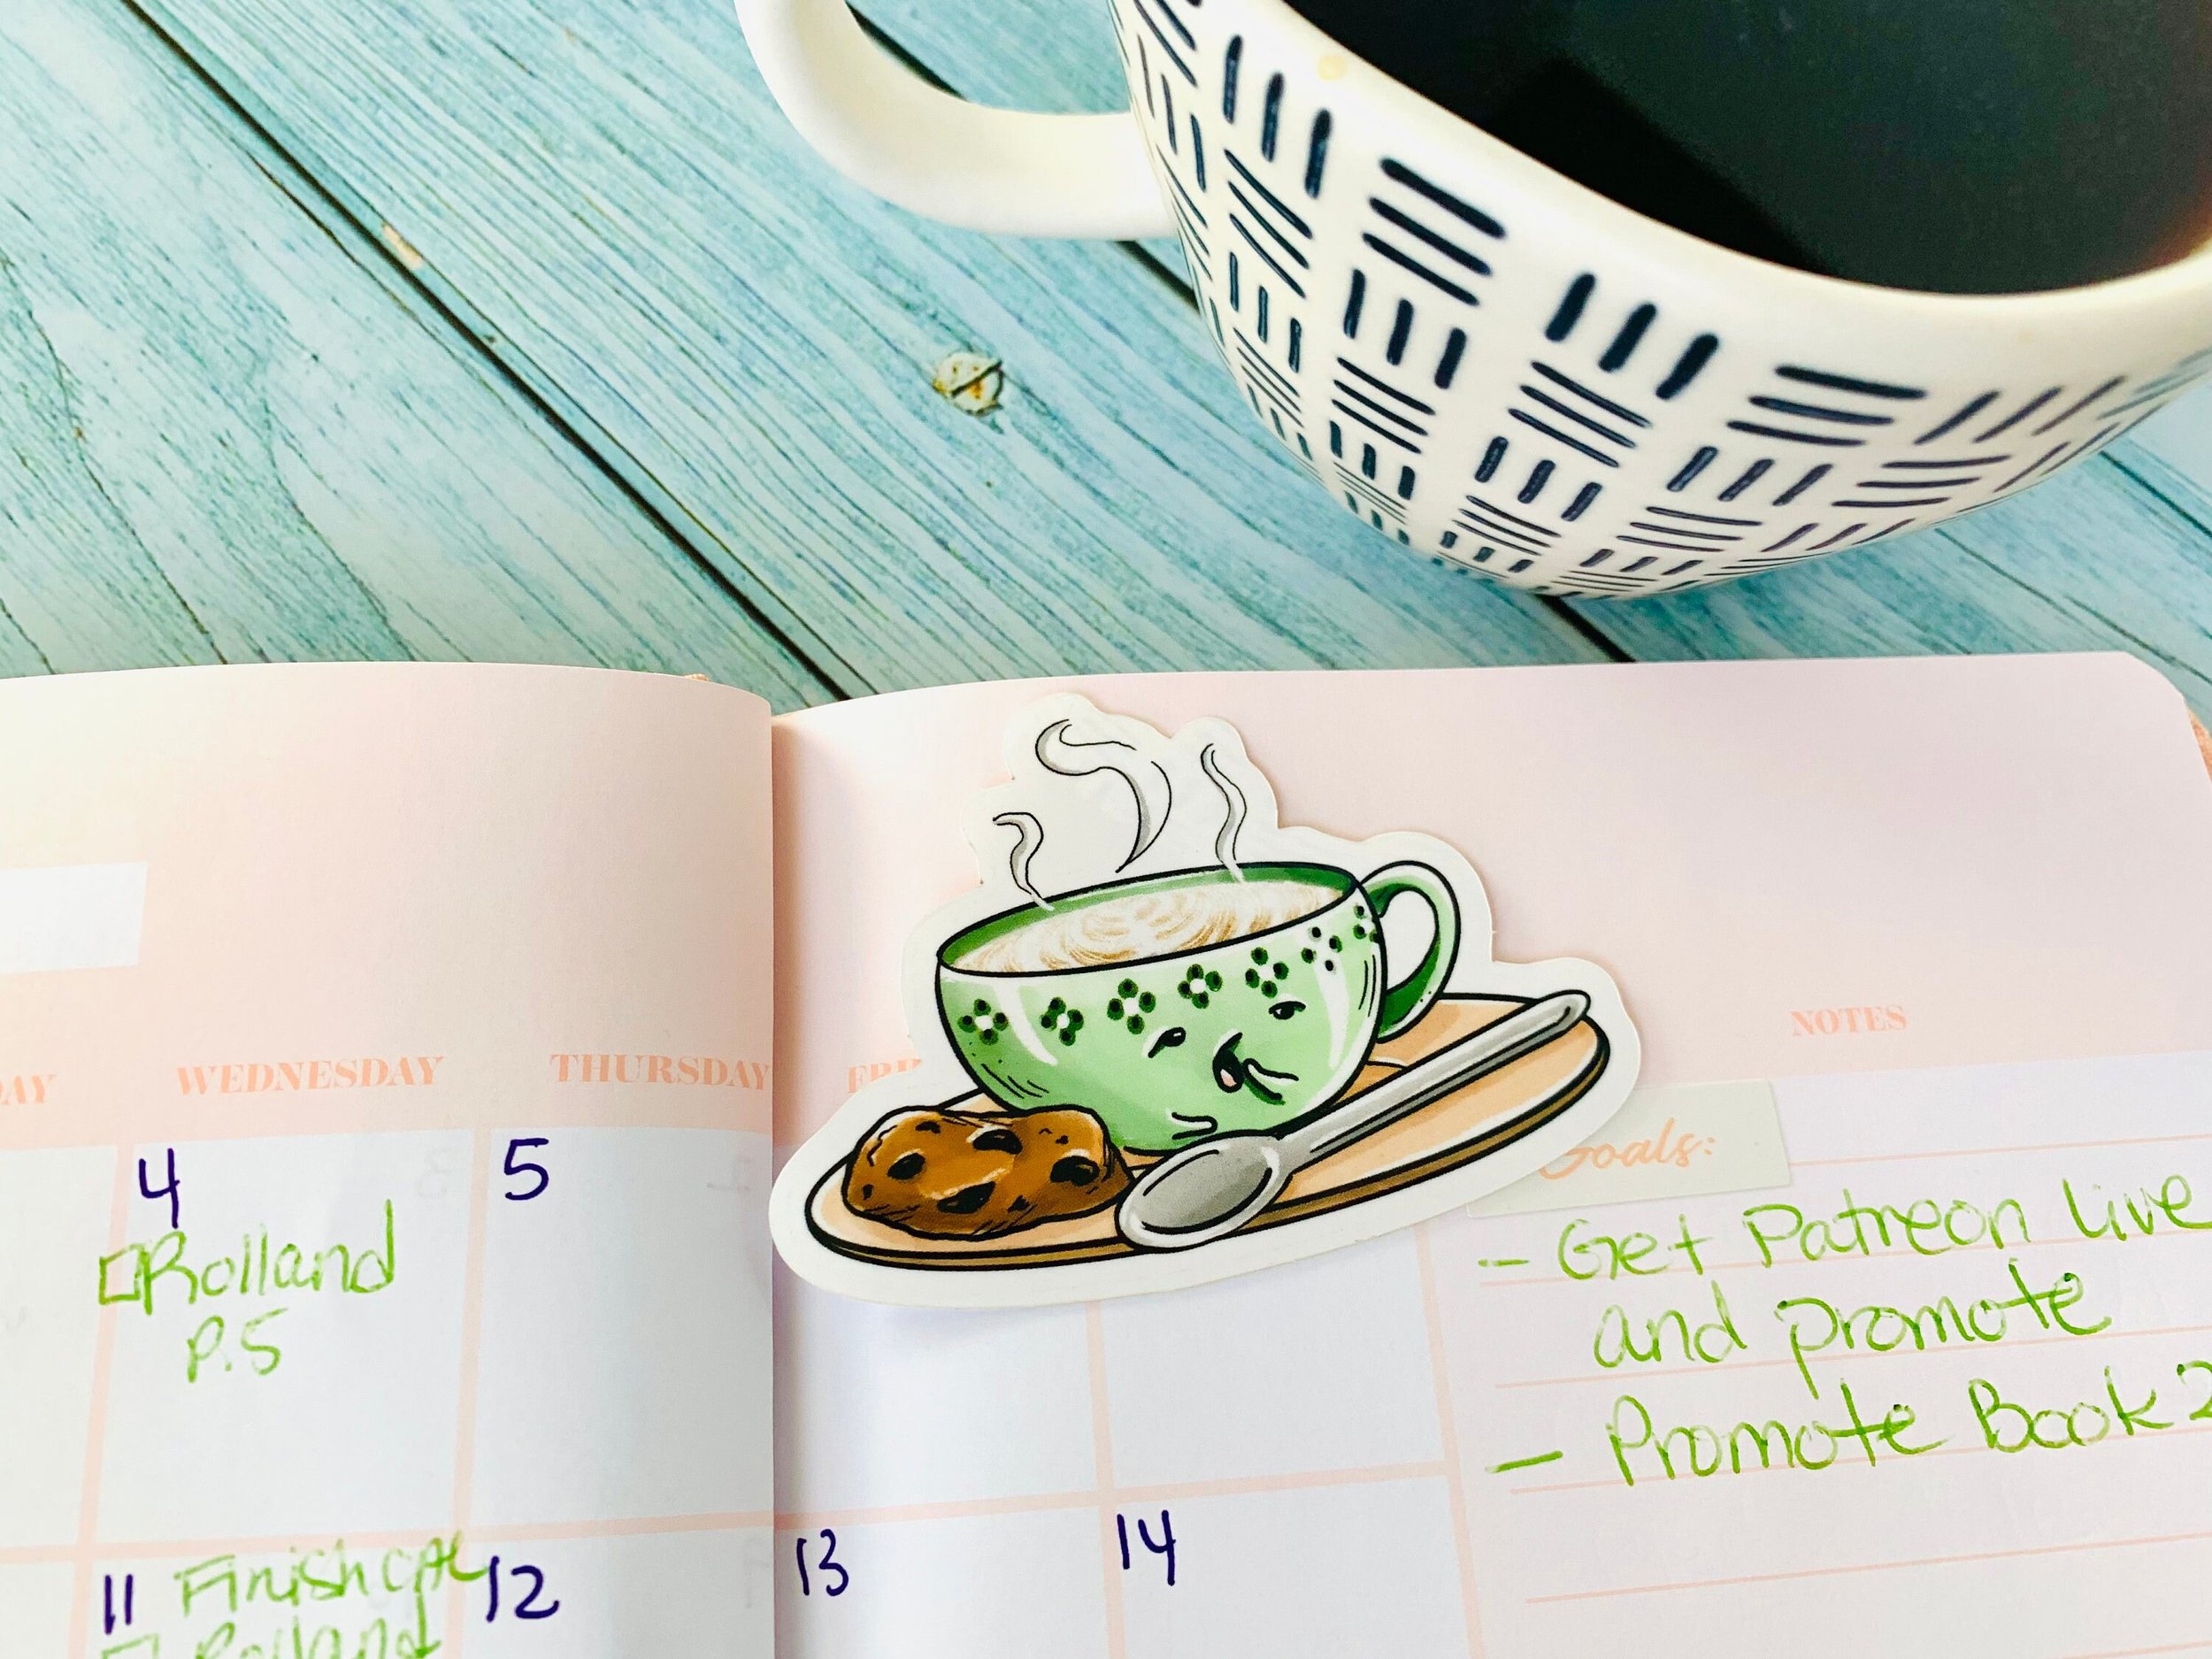 WEDNESDAY
THURSDAY
NOTES
4
Rolland
P.5
5
Goals:
- Get Patreon live
and promote
- Promote Book 2
11 Finish
Rolland
12
13
14